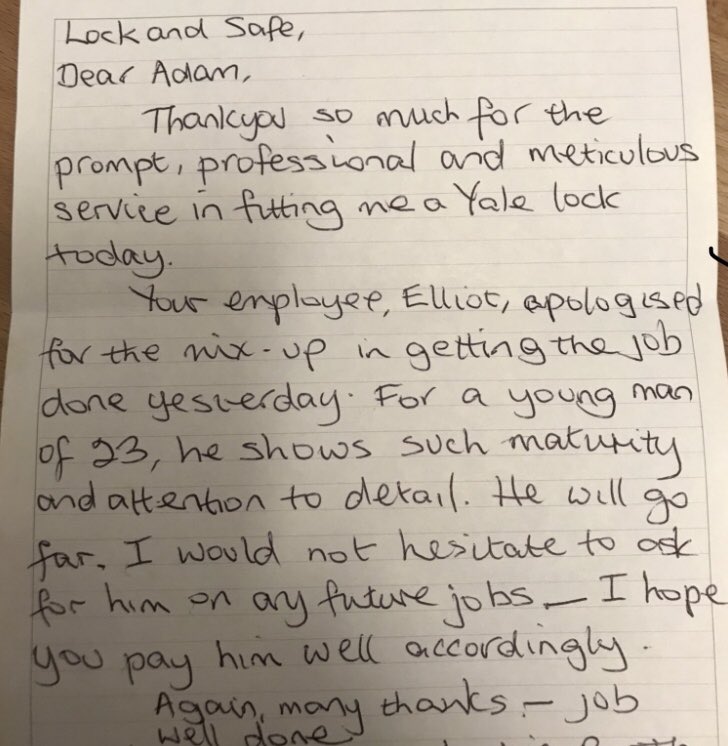 Lock and Safe,
Dear Adam,
Thankyou so much for the
prompt, professional and meticulous
service in fitting me a Yale lock
today.
Your employee, Elliot, apologised
for the mix-up in getting the job
done yesterday. For a young man
of 23, he shows such maturity
and attention to detail. He will go
far. I would not hesitate to ask
for him on any future jobs — I hope
you pay him well accordingly.
Again, many thanks — job
well done